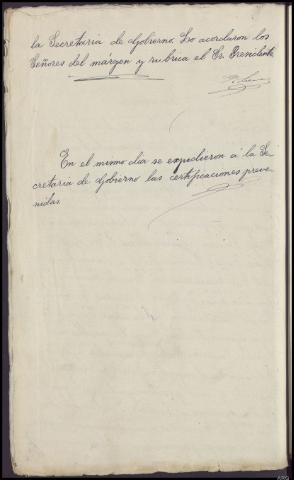 la Secretaria de Gobierno. Lo acordaron los
Señores del márgen y rubrica el Sr. Presidente
En el mismo dia se expidieron á la Se-
cretaria de Gobierno las certificaciones preve-
nidas.